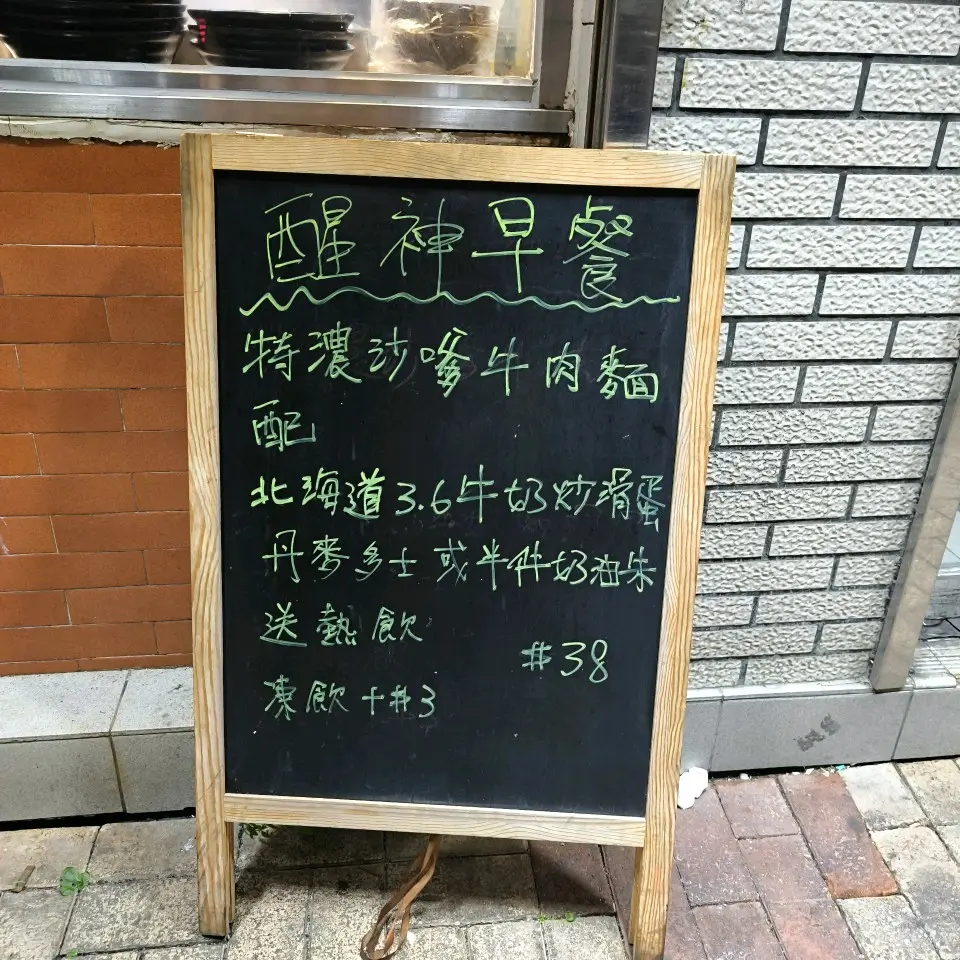 醒神早餐
特濃沙嗲牛肉麵
配
北海道3.6牛奶炒滑蛋
丹麥多士或半件奶油朱
送熱飲
#38
凍飲+#3